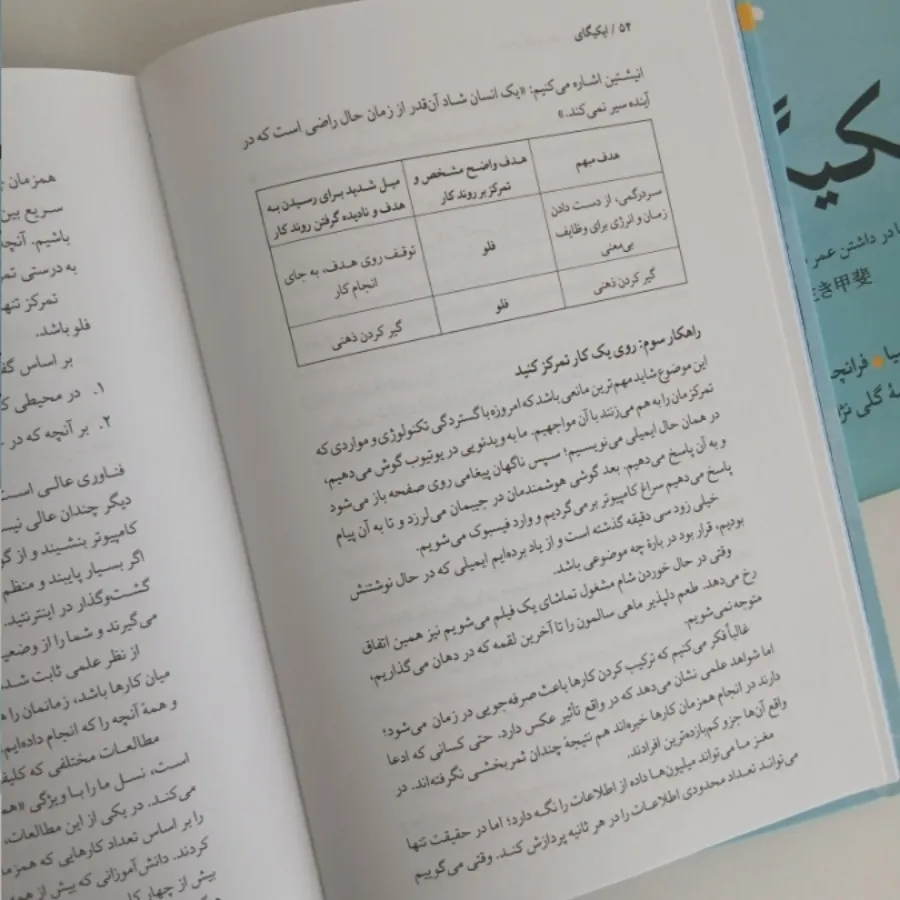 ۵۴ / ایکیگای
انیشتین اشاره می‌کنیم: «یک انسان شاد آن‌قدر از زمان حال راضی است که در
آینده سیر نمی‌کند.»
هدف مبهم
هدف واضح مشخص و
تمرکز بر روند کار
میل شدید برای رسیدن به
هدف و نادیده گرفتن روند کار
سردرگمی، از دست دادن
زمان و انرژی برای وظایف
بی‌معنی
فلو
توقف روی هدف، به جای
انجام کار
گیر کردن ذهنی
فلو
گیر کردن ذهنی
راهکار سوم: روی یک کار تمرکز کنید
این موضوع شاید مهم‌ترین مانعی باشد که امروزه با گستردگی تکنولوژی و مواردی که
تمرکزمان را به هم می‌زنند با آن مواجهیم. ما به ویدئویی در یوتیوب گوش می‌دهیم،
در همان حال ایمیلی می‌نویسیم؛ سپس ناگهان پیغامی روی صفحه باز می‌شود
و به آن پاسخ می‌دهیم. بعد گوشی هوشمندمان در جیبمان می‌لرزد و تا به آن پیام
پاسخ می‌دهیم سراغ کامپیوتر برمی‌گردیم و وارد فیسبوک می‌شویم.
خیلی زود سی دقیقه گذشته است و از یاد برده‌ایم ایمیلی که در حال نوشتنش
بودیم، قرار بود در بارهٔ چه موضوعی باشد.
وقتی در حال خوردن شام مشغول تماشای یک فیلم می‌شویم نیز همین اتفاق
رخ می‌دهد. طعم دلپذیر ماهی سالمون را تا آخرین لقمه که در دهان می‌گذاریم،
متوجه نمی‌شویم.
غالباً فکر می‌کنیم که ترکیب کردن کارها باعث صرفه‌جویی در زمان می‌شود؛
اما شواهد علمی نشان می‌دهد که در واقع تأثیر عکس دارد. حتی کسانی که ادعا
دارند در انجام همزمان کارها خبره‌اند هم نتیجهٔ چندان ثمربخشی نگرفته‌اند. در
واقع آن‌ها جزو کم‌بازده‌ترین افرادند.
مغز ما می‌تواند میلیون‌ها داده از اطلاعات را نگه دارد؛ اما در حقیقت تنها
می‌تواند تعداد محدودی اطلاعات را در هر ثانیه پردازش کند. وقتی می‌گوییم
همزمان
سریع بین
باشیم. آنچه
به درستی
تمرکز تنها
فلو باشد.
بر اساس
۱. در محیطی
۲. بر آنچه که در
فناوری عالی است
دیگر چندان عالی
کامپیوتر بنشیند و از
اگر بسیار پایبند و منظم
گشت‌وگذار در اینترنتید.
می‌گیرند و شما را از
از نظر علمی ثابت
میان کارها باشد، زمانمان را
و همهٔ آنچه را که انجام داده‌ایم
مطالعات مختلفی که
است، نسل ما را با ویژگی
می‌کند. در یکی از این مطالعات،
را بر اساس تعداد کارهایی که
کردند. دانش‌آموزانی که بیش از
بیش از چهار
در داشتن عمر
き甲斐
گلی